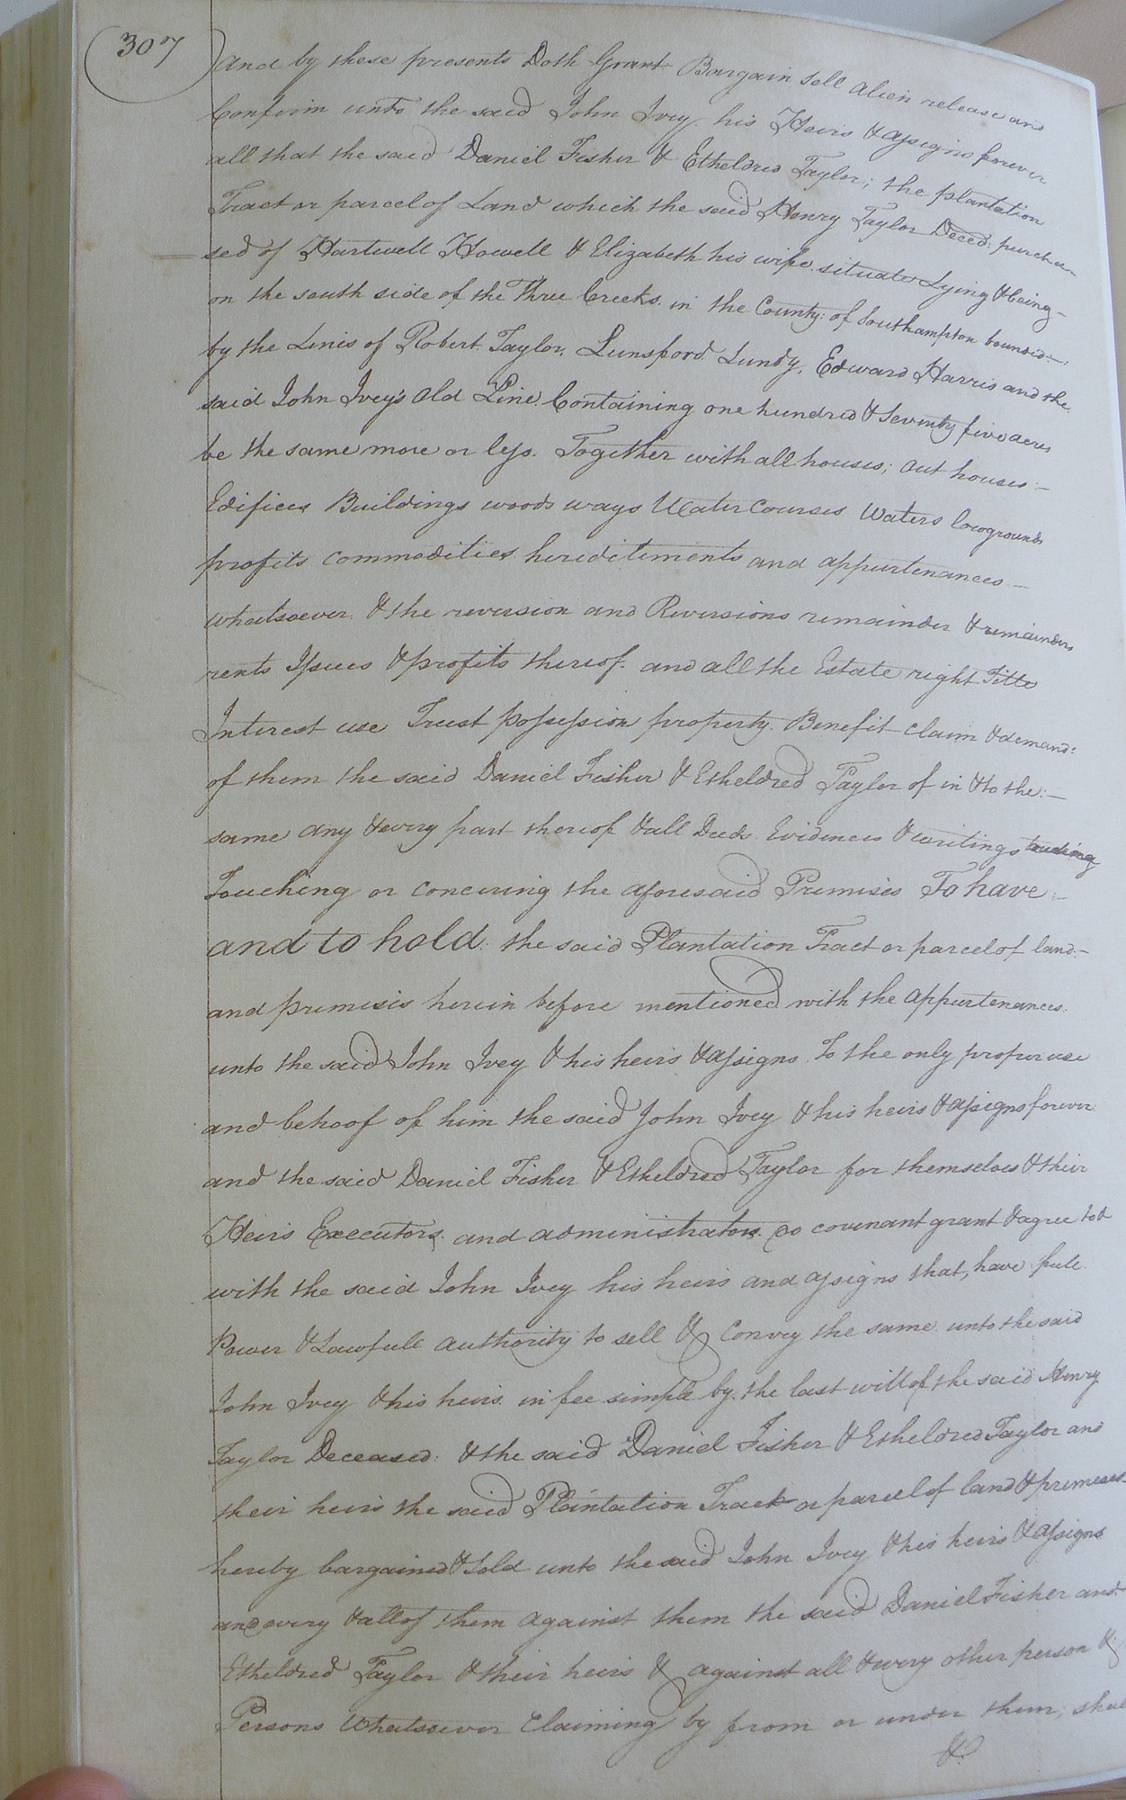 307
And by these presents Doth Grant Bargain Sell alien release and
Confirm unto the said John Ivey his Heirs & assigns forever
all that the said Daniel Fisher & Etheldred Taylor; the plantation
Tract or parcel of Land which the said Henry Taylor Deced: purcha-
sed of Hartwell Howell & Elizabeth his wife situate Lying & being -
on the south side of the Three Creeks in the County: of Southampton bounded -
by the Lines of Robert Taylor, Lunsford Lundy, Edward Harris and the
said John Ivey's Old Line Containing one hundred & Seventy five acres
be the same more or less. Together with all houses; out houses -
Edifices Buildings woods ways Water Courses Waters lowgrounds
profits commodities hereditiments and appurtenances -
whatsoever & the reversion and Reversions remainder & remainders
rents Issues & profits thereof and all the Estate right Title
Interest use Trust possession property Benefit claim & demand:
of them the said Daniel Fisher & Etheldred Taylor of in & to the: -
same any & every part thereof & all Deeds Evidences & writings touching
Touching or concerning the aforesaid Premises To have -
and to hold: the said Plantation Tract or parcel of land: -
and premises herein before mentioned with the appurtenances
unto the said John Ivey & his heirs & assigns To the only proper use
and behoof of him the said John Ivey & his heirs & assigns forever
and the said Daniel Fisher & Etheldred Taylor for themselves & their
Heirs Executors and administrators do covenant grant & agree to &
with the said John Ivey his heirs and assigns that, have full
Power & Lawfull authority to sell & Convey the same unto the said
John Ivey & his heirs in fee simple by the last will of the said Henry
Taylor Deceased: & the said Daniel Fisher & Etheldred Taylor and
their heirs the said Plantation Tract or parcel of land & premises
hereby bargained & Sold unto the said John Ivey & his heirs & assigns
and every & all of them against them the said Daniel Fisher and
Etheldred Taylor & their heirs & against all & every other person &
Persons Whatsoever Claiming by from or under them; shall
&c